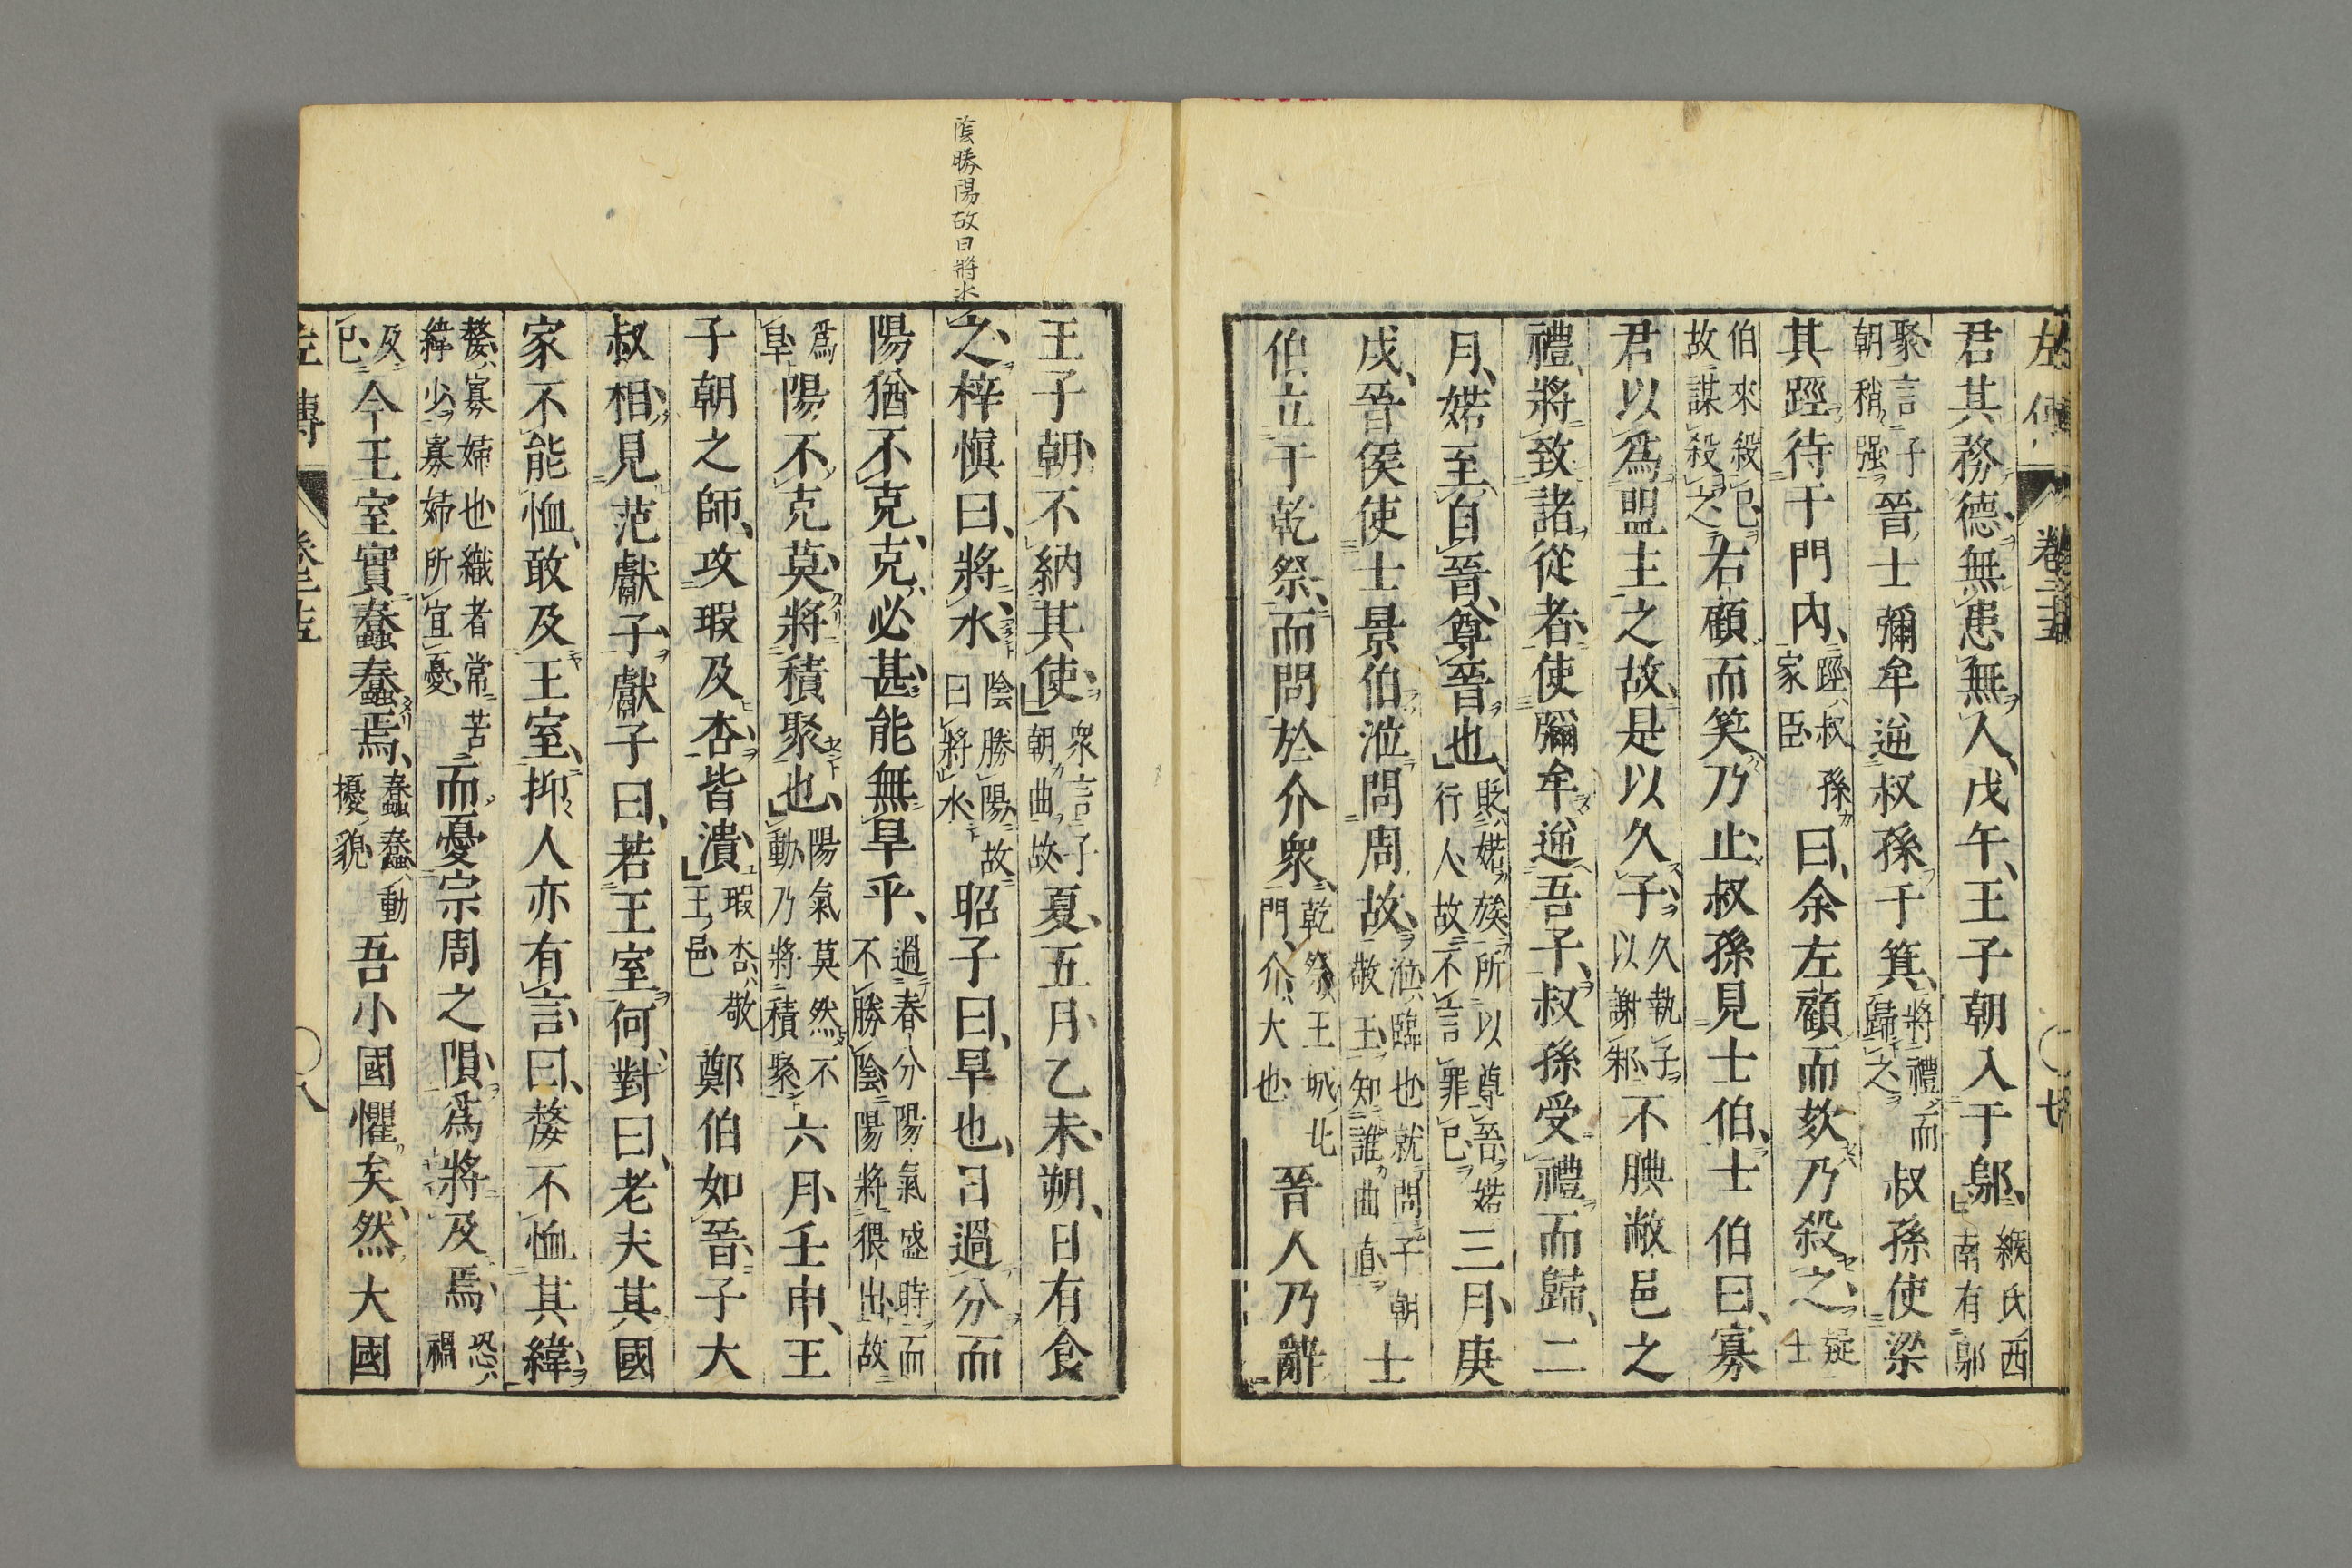 左傳 卷二十五 ○七
君其務德、無患無人、戊午、王子朝入于鄔、緱氏西南有鄔
聚、言子朝稍强、晉士彌牟逆叔孫于箕、將禮而歸之、叔孫使梁
其踁待于門內、踁、叔孫家臣曰、余左顧而欬乃殺之、疑士
伯來殺已故謀殺之右顧而笑乃止、叔孫見士伯、士伯曰、寡
君以爲盟主之故、是以久子、久執子以謝邾、不腆敝邑之
禮、將致諸從者、使彌牟逆吾子、叔孫受禮而歸、二
月、婼至自晉、尊晉也、貶婼族所以尊晉婼行人、故不言罪已三月、庚
戌、晉侯使士景伯涖問周故、涖、臨也就問子朝敬王、知誰曲直士
伯立于乾祭、而問於介衆、乾祭、王城北門、介、大也晉人乃辭
陰勝陽故曰將水
王子朝、不納其使、衆言子朝曲故夏、五月、乙未、朔、日有食
之、梓愼曰、將水陰勝陽、故曰將水、昭子曰、旱也、日過分而
陽猶不克、克必甚、能無旱乎、過春分陽氣盛時而不勝陰、陽將猥出、故
爲旱陽不克莫、將積聚也、陽氣莫然不動乃將積聚六月、壬申、王
子朝之師、攻瑕及杏、皆潰、瑕杏、敬王邑鄭伯如晉、子大
叔相、見范獻子、獻子曰、若王室何、對曰、老夫其國
家不能恤、敢及王室、抑人亦有言、曰、嫠不恤其緯、
嫠、寡婦也織者常苦緯少、寡婦所宜憂而憂宗周之隕、爲將及焉、恐禍
及已、今王室實蠢蠢焉、蠢蠢、動擾貌吾小國懼矣、然大國
左傳 卷二十五 ○八